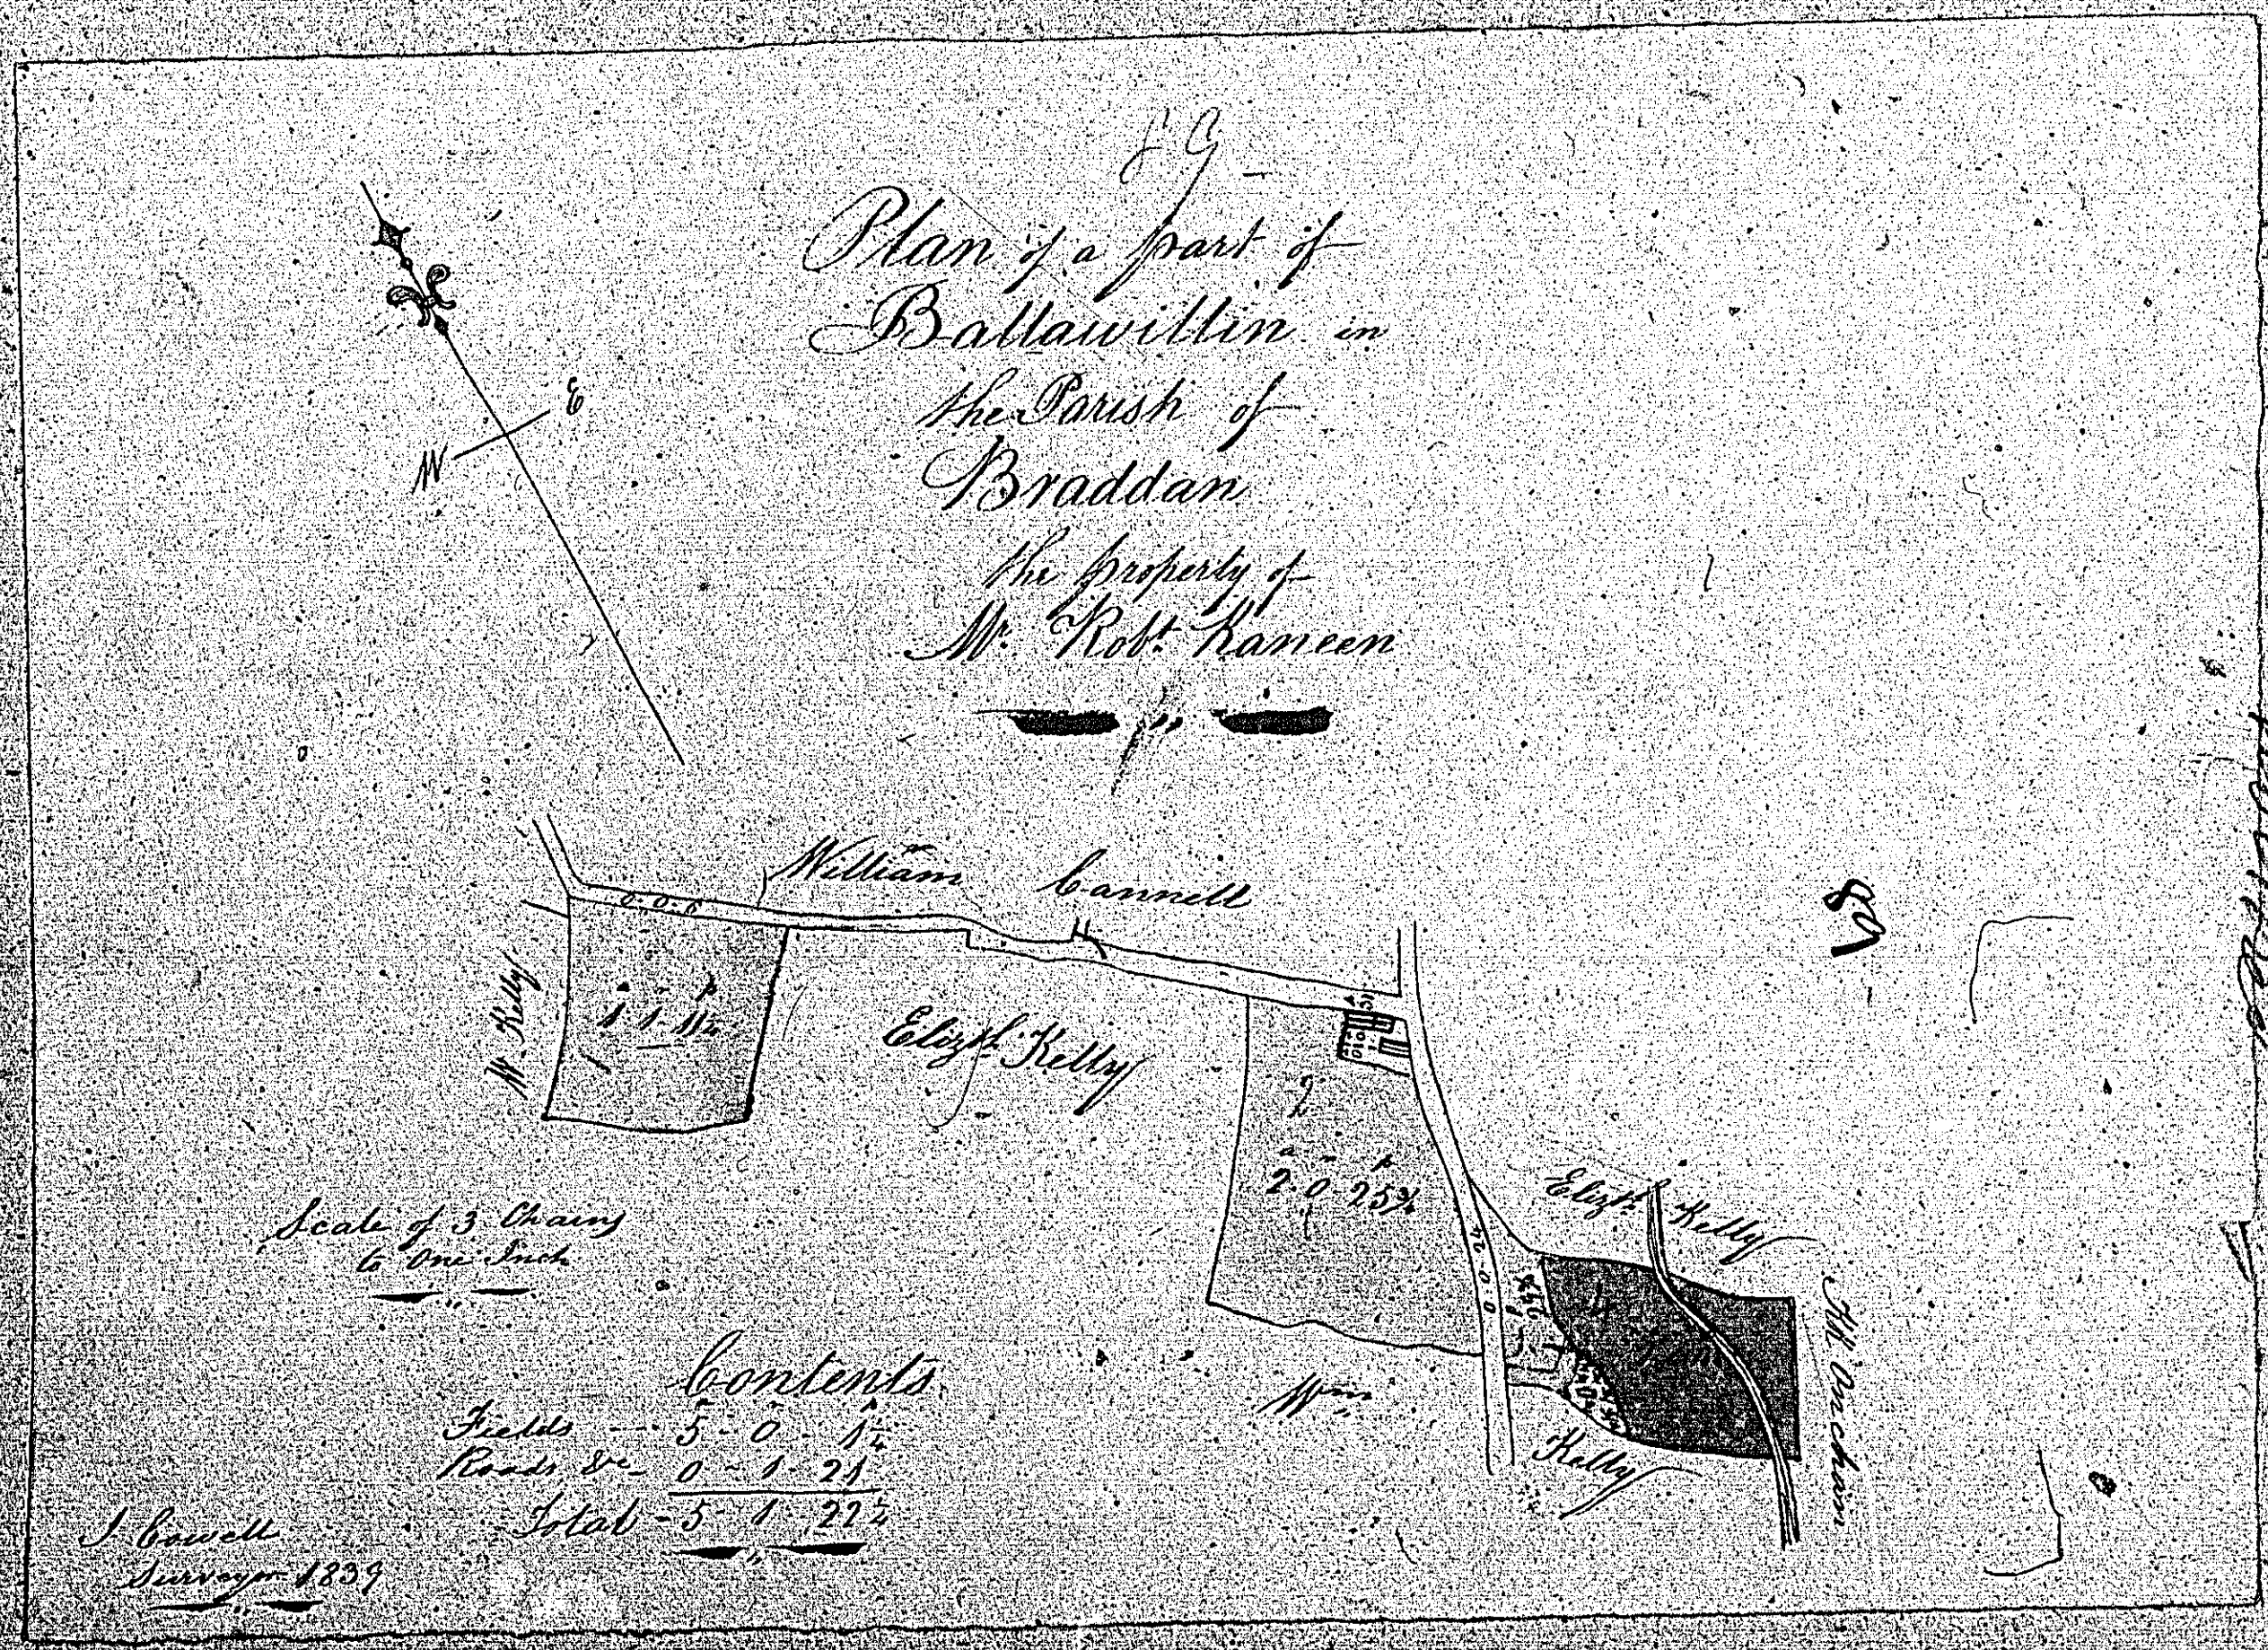 Plan of a part of
Ballawillin in
the Parish of
Braddan
the property of
Mr. Robt. Kaneen
E
W
William Cannell
0-0-6
W. Kelly
a r p
Elizth. Kelly
2
a r p
2-0-25¾
0-0-24
Elizth. Kelly
Kk Onchan
Wm.
Kelly
89
Scale of 3 Chains
to One Inch
Contents
a r p
Fields - 5-0-1¼
Roads &c - 0-1-21
Total - 5-1-22¼
J Cowell
Surveyor 1839